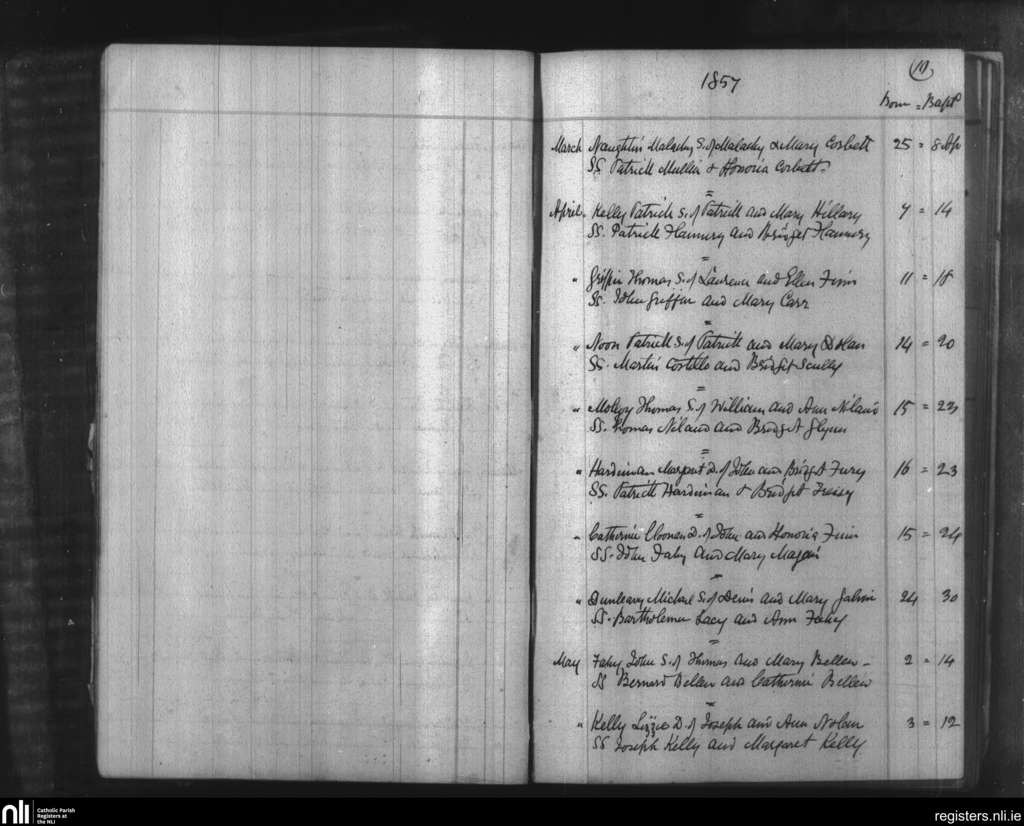 1857
Born = Bapt
March Naughtin Malachy S. of Malachy & Mary Corbett 25 = 8 Ap
SS Patrick Mullin & Honoria Corbett.
April. Kelly Patrick S. of Patrick and Mary Hillary 7 = 14
SS. Patrick Flannery and Bridget Flannery
" Griffin Thomas S. of Laurence and Ellen Finn 11 = 18
SS. John Griffin and Mary Carr
" Noon Patrick S. of Patrick and Mary Dolan 14 = 20
SS. Martin Costello and Bridget Scully
" Molloy Thomas S. of William and Ann Niland 15 = 23
SS. Thomas Niland and Bridget Glynn
" Hardiman Margaret D. of John and Bridget Fury 16 = 23
SS. Patrick Hardiman & Bridget
" Catherine Cloonan D. of John and Honoria Finn 15 = 24
SS. John Fahy and Mary
" Dunleavy Michael S. of Denis and Mary Galvin 24 30
SS. Bartholemew Lacy and Ann Fahy
May Fahy John S. of Thomas and Mary Bellew - 2 = 14
SS Bernard Bellew and Catherine Bellew
" Kelly Lizzie D. of Joseph and Ann Nolan 3 = 12
SS Joseph Kelly and Margaret Kelly
nli Catholic Parish
Registers at
the NLI
registers.nli.ie